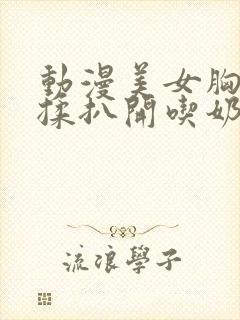 動漫美女胸
揉扒開喫奶
流浪學子